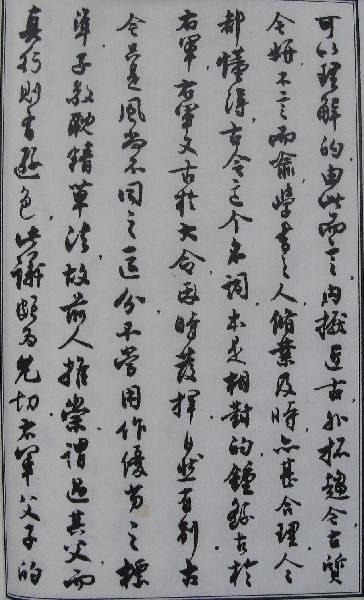 可以理解的由此而言内擫近古外拓趨今古質
今妍不言而喻學書之人脩業及時亦甚合理人人
都懂得古今这个名詞本是相對的鍾繇古於
右軍右軍又古於大令因時發揮自然有別古
今只是風尚不同之區分不當用作優劣之標
準子敬耽精草法故前人推崇謂過其父而
真行則有遜色此議頗為允切右軍父子的